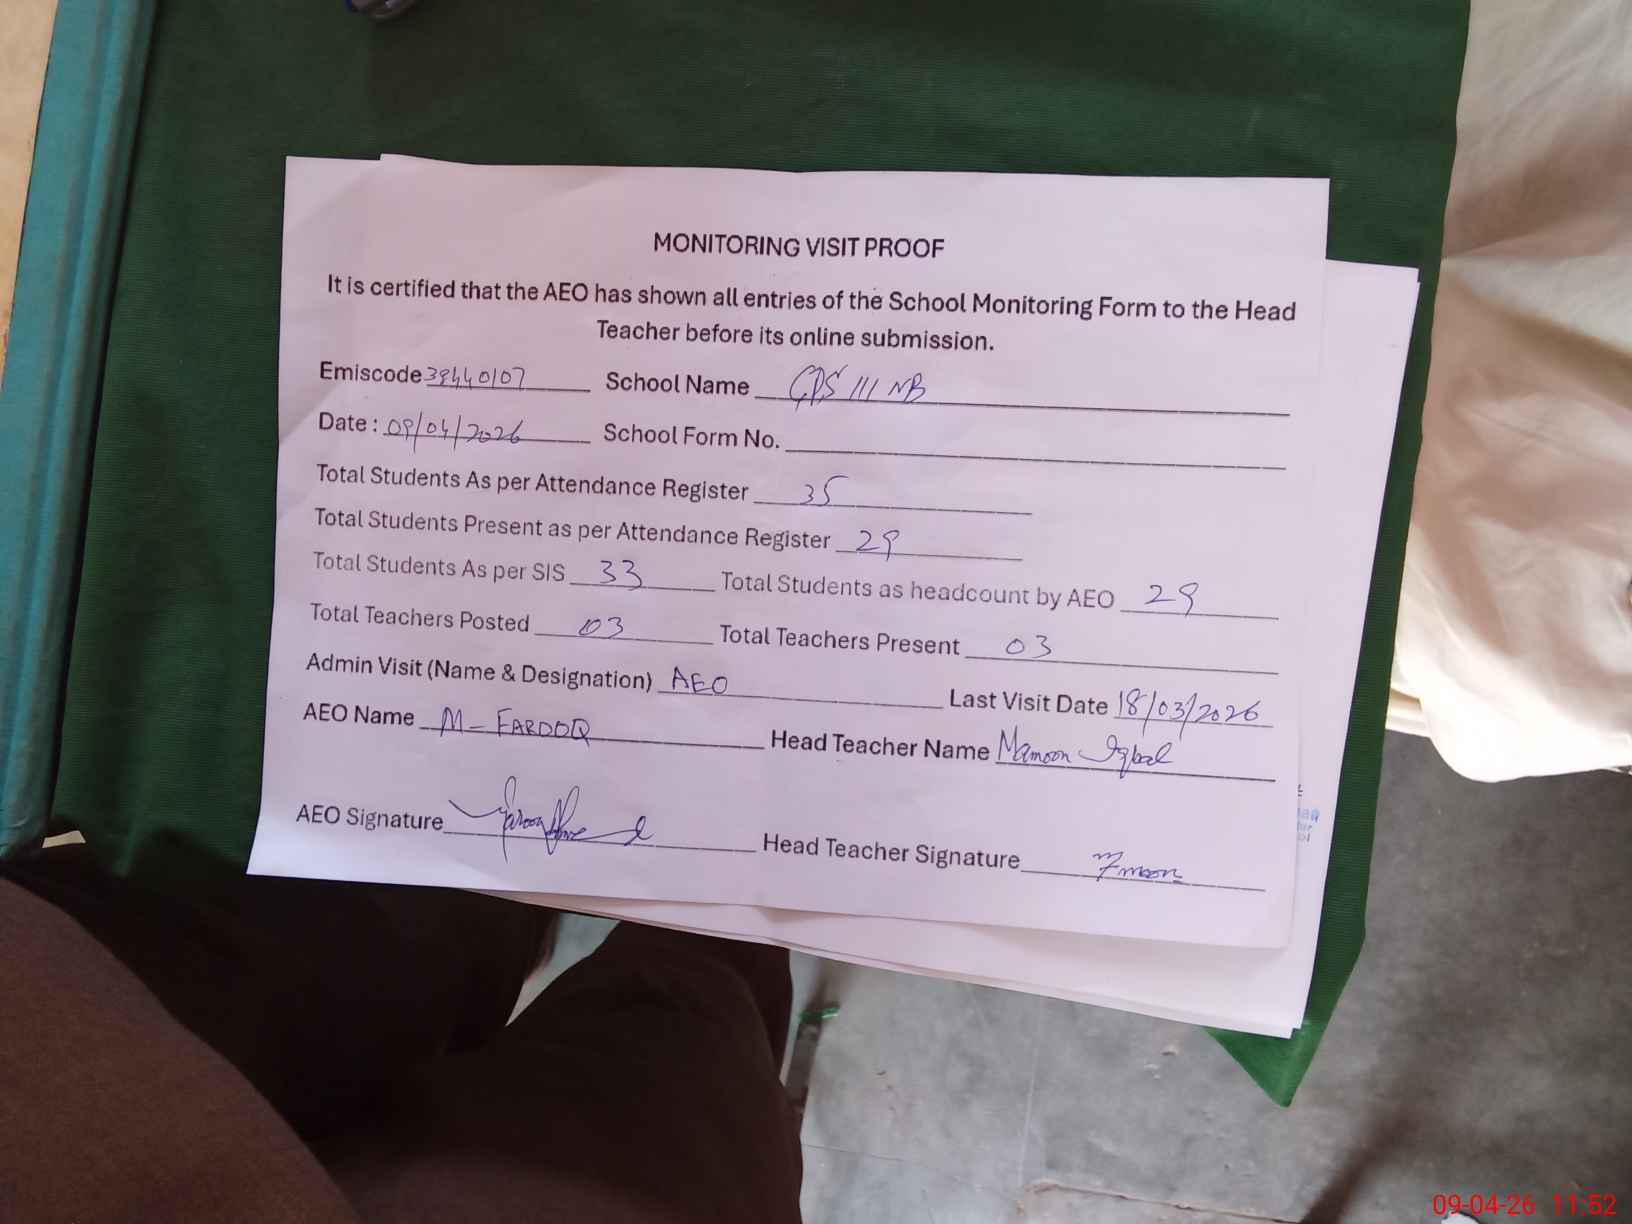 MONITORING VISIT PROOF
It is certified that the AEO has shown all entries of the School Monitoring Form to the Head
Teacher before its online submission.
Emiscode 38440107 School Name GPS 111 NB
Date : 09/04/2026 School Form No.
Total Students As per Attendance Register 35
Total Students Present as per Attendance Register 29
Total Students As per SIS 33 Total Students as headcount by AEO 29
Total Teachers Posted 03 Total Teachers Present 03
Admin Visit (Name & Designation) AEO Last Visit Date 18/03/2026
AEO Name M- FAROOQ Head Teacher Name Mamoon Iqbal
AEO Signature Head Teacher Signature
09-04-26 11:52